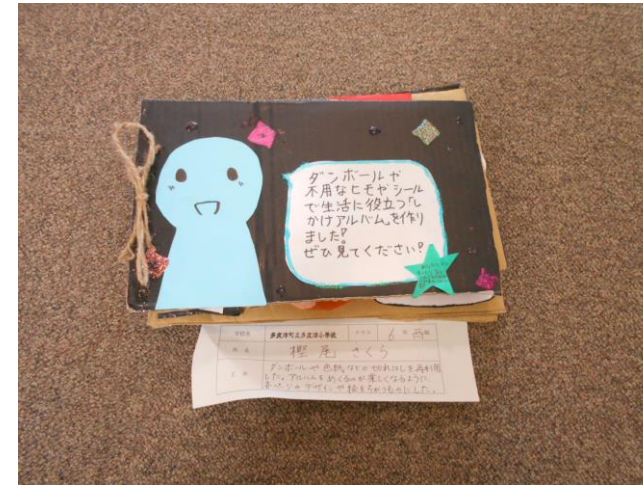 ダンボールや
不用なヒモやシール
で生活に役立つ「し
かけアルバム」を作り
ました!
ぜひ見てください!
多度津町立多度津小学校 6年
樫尾 さくら
ダンボールや色紙などの切れはしを再利用
した。アルバムをめくるのが楽しくなるように
各ページのデザインや絵をちがうものにした。